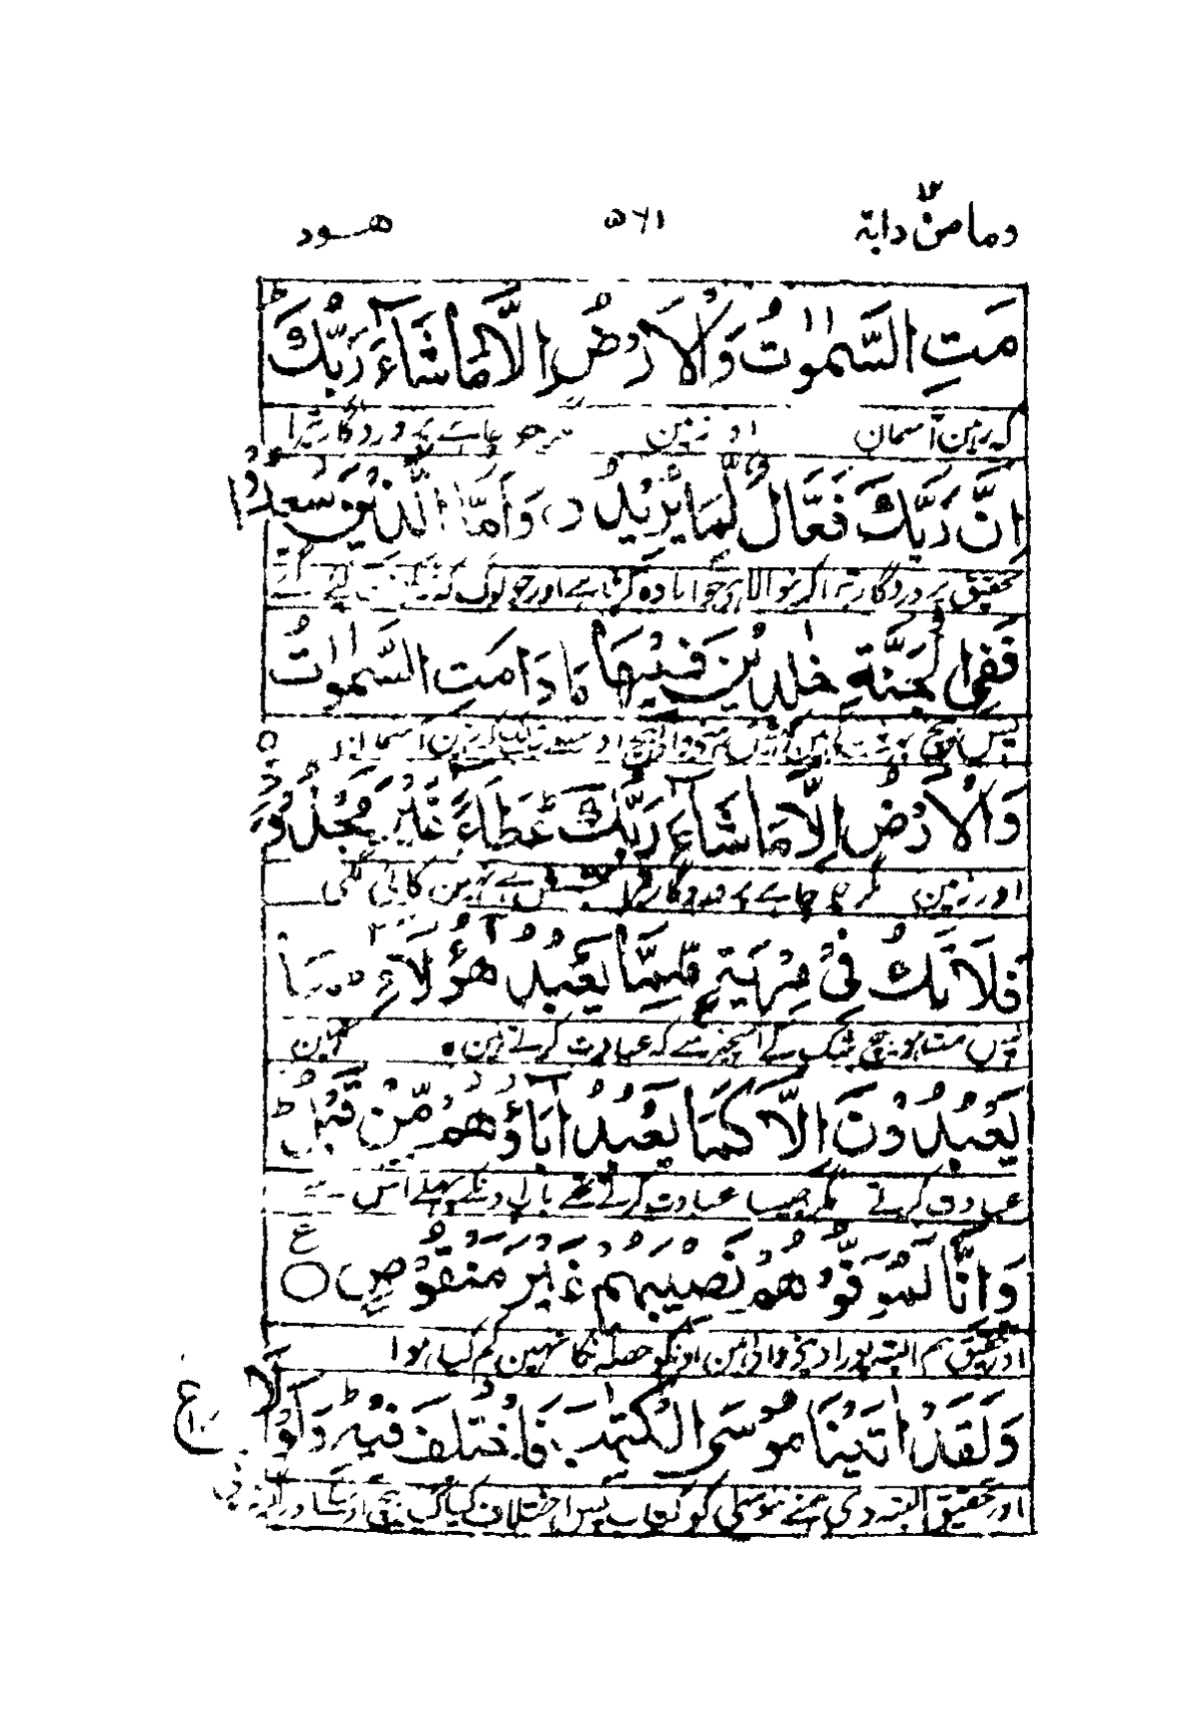 وما من دابۃ ۱۲ ۵۶۱ هود
مَتِ السَّمٰوٰتُ وَالْاَرْضُ اِلَّا مَا شَآءَ رَبُّكَ ؕ
کہ رہین آسمان اور زمین مگر جو چاہے پروردگار تیرا
اِنَّ رَبَّكَ فَعَّالٌ لِّمَا يُرِيْدُ وَاَمَّا الَّذِيْنَ سُعِدُوْا
تحقیق پروردگار تیرا کرنیوالا ہی جو ارادہ کرتا ہے اور جو لوگ کہ
فَفِى الْجَنَّةِ خٰلِدِيْنَ فِيْهَا مَا دَامَتِ السَّمٰوٰتُ
پس بیچ
وَالْاَرْضُ اِلَّا مَا شَآءَ رَبُّكَ ؕ عَطَآءً غَيْرَ مَجْذُوْذٍ
اور زمین مگر جو چاہے پروردگار تیرا بخشش ہے نہین کاٹی گئی
فَلَا تَكُ فِىْ مِرْيَةٍ مِّمَّا يَعْبُدُ هٰٓؤُلَآءِ ؕ مَا
پس مت ہو بیچ شک کے اسچیز سے کہ عبادت کرتے ہین
يَعْبُدُوْنَ اِلَّا كَمَا يَعْبُدُ اٰبَآؤُهُمْ مِّنْ قَبْلُ ؕ
عبادت کرتے مگر جیسا عبادت کرتے تھے باپ اونکے پہلے اس سے
وَاِنَّا لَمُوَفُّوْهُمْ نَصِيْبَهُمْ غَيْرَ مَنْقُوْصٍ ○ ع
اور تحقیق ہم البتہ پورا دینے والی ہین اونکو حصہ اونکا نہین کم کیا ہوا
وَلَقَدْ اٰتَيْنَا مُوْسَى الْكِتٰبَ فَاخْتُلِفَ فِيْهِ ؕ وَلَوْلَا
اور تحقیق البتہ دی ہمنے موسیٰ کو کتاب پس اختلاف کیا گیا بیچ اوسکے اور اگر نہ